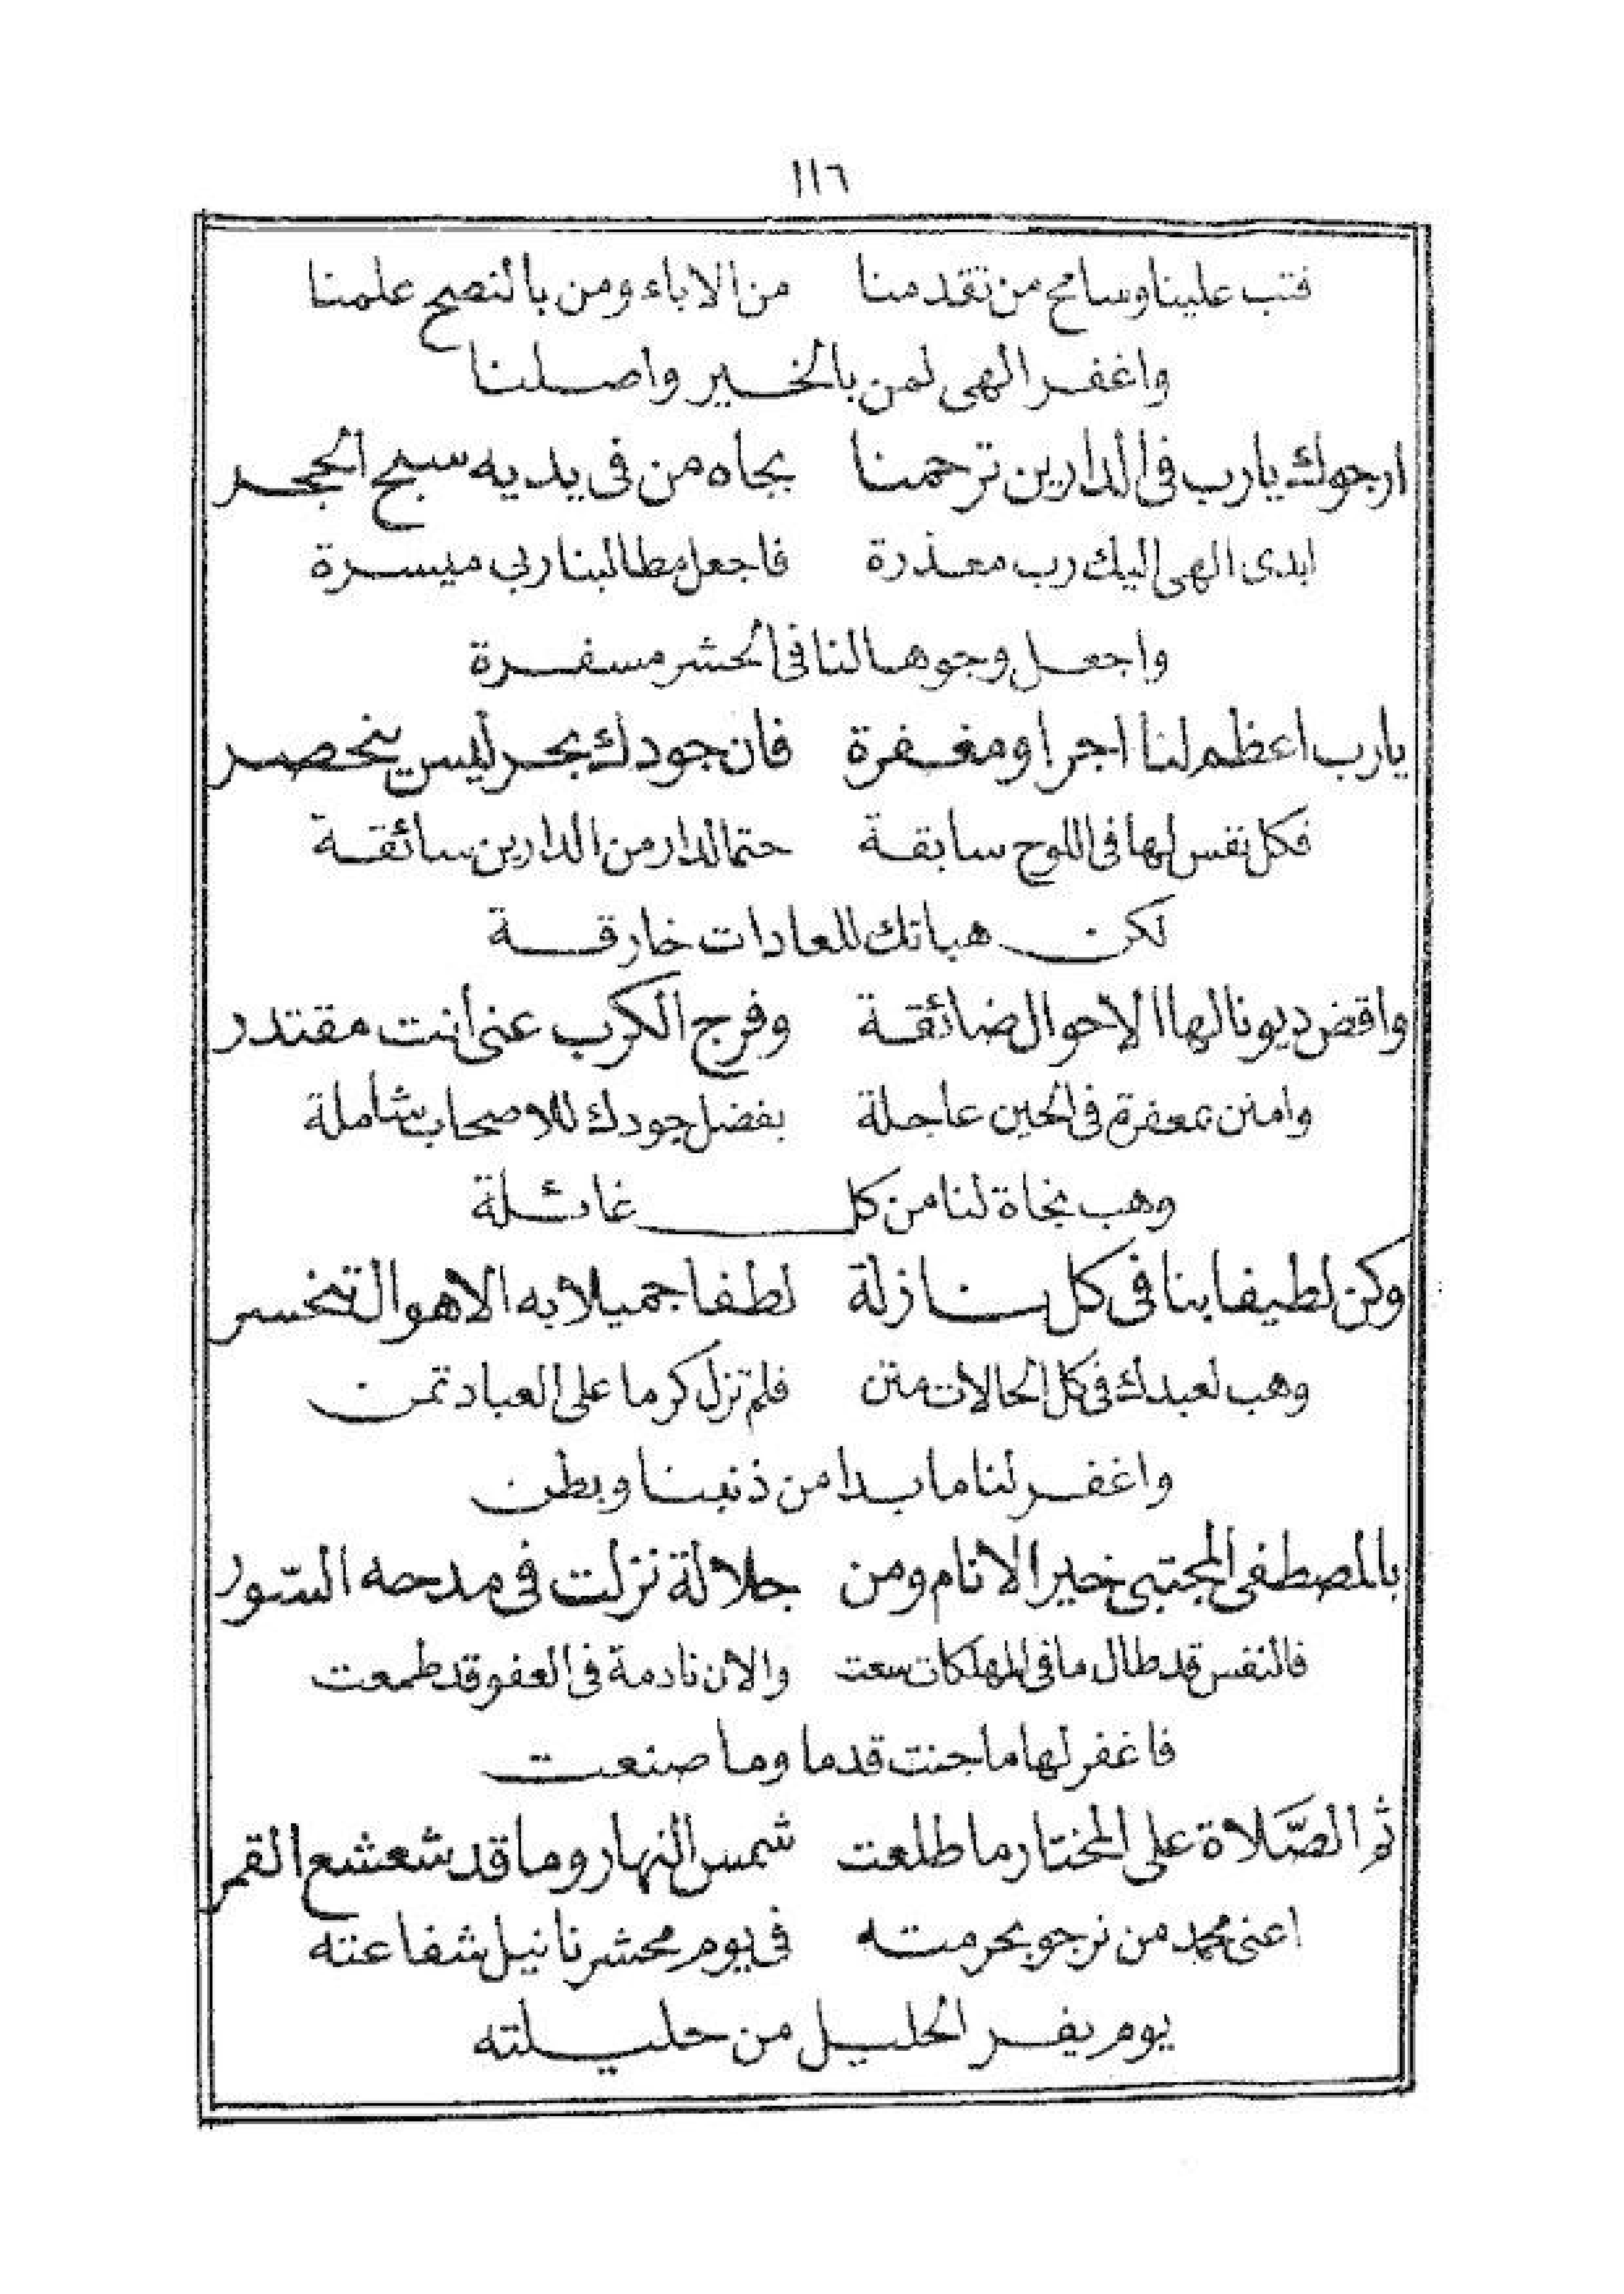 ١١٦
فتب علينا وسامح من تقدمنا من الاباء ومن بالنصح علمنا
واغفر الهى لمن بالخير واصلنا
ارجوك يارب فى الدارين ترحمنا بجاه من فى يديه سبح الحجر
ابدى الهى اليك رب معذرة فاجعل مطالبنا ربى ميسرة
واجعل وجوها لنا فى الحشر مسفرة
يارب اعظم لنا اجرا ومغفرة فان جودك بحر ليس ينحصر
فكل نفس لها فى اللوح سابقة حتما لدار من الدارين سائقة
لكن هباتك للعادات خارقة
واقض ديونا لها الاحوال ضائقة وفرج الكرب عنى انت مقتدر
وامنن بمغفرة فى الحين عاجلة بفضل جودك للاصحاب شاملة
وهب نجاة لنا من كل غائلة
وكن لطيفا بنا فى كل نازلة لطفا جميلا به الاهوال تنحسر
وهب لعبدك فى كل الحالات منن فلم تزل كرما على العباد تمن
واغفر لنا ما بدا من ذنبنا وبطن
بالمصطفى المجتبى خير الانام ومن جلالة نزلت فى مدحه السّور
فالنفس قد طال ما فى المهلكات سعت والان نادمة فى العفو قد طمعت
فاغفر لها ما جنت قدما وما صنعت
ثم الصَّلاة على المختار ما طلعت شمس النهار وما قد شعشع القمر
اعنى محمد من نرجو بحرمته فى يوم محشرنا نيل شفاعته
يوم يفر الحليل من حليلته